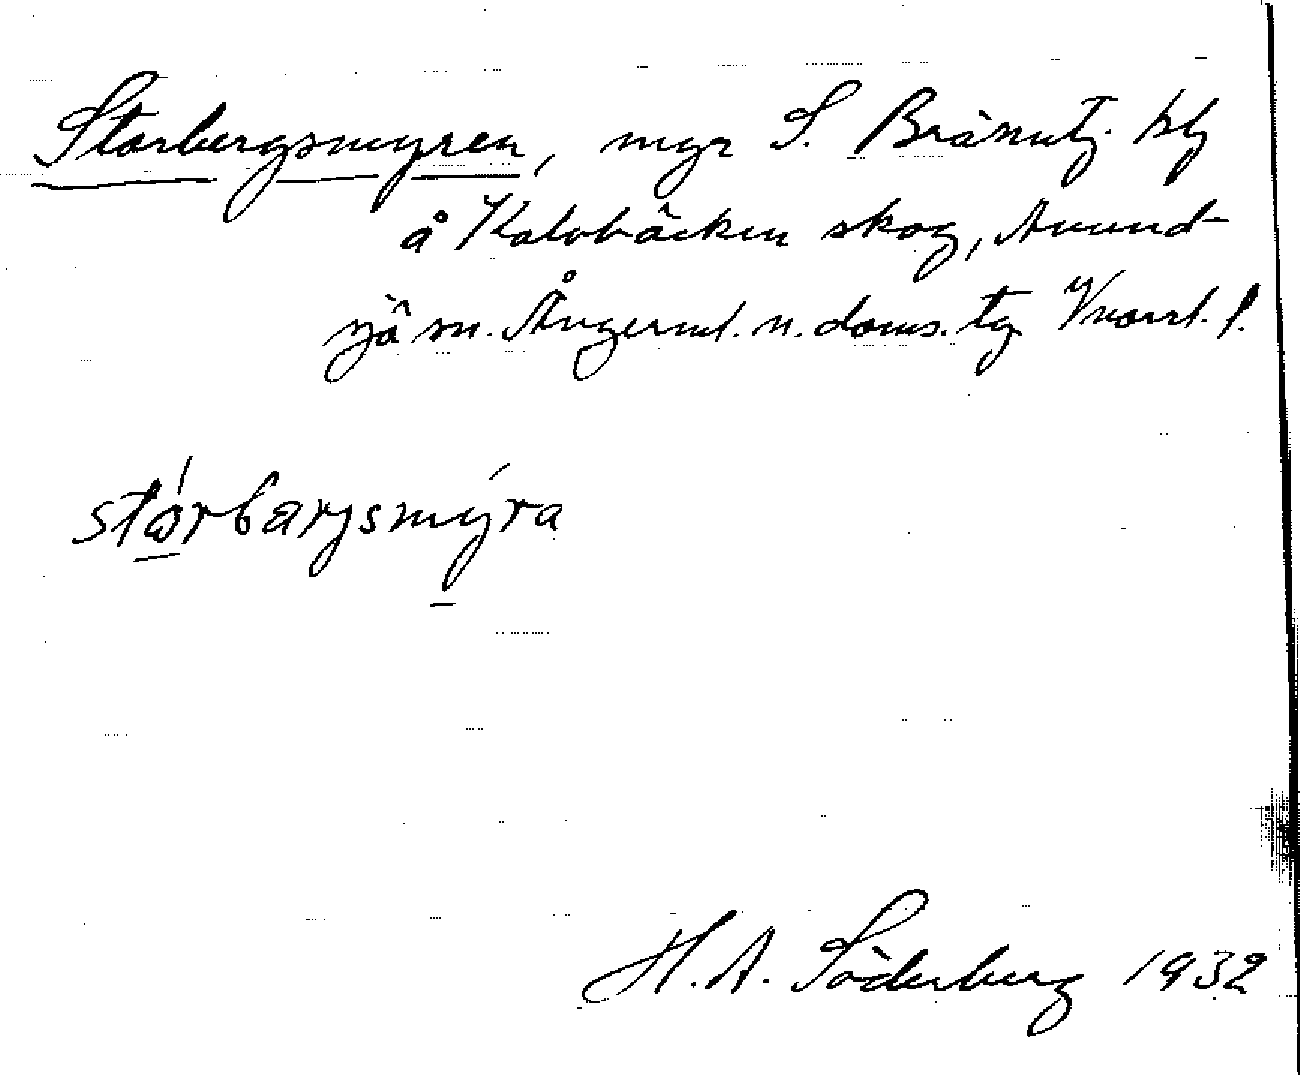 Storbergsmyren, myr S. Brännutj. hfg
å Kalvbäcken skog, Anund-
sjö sn. Ångerml. n. doms. tg Vnorrl. l.
stórbarjsmýra
H. A. Söderberg 1932